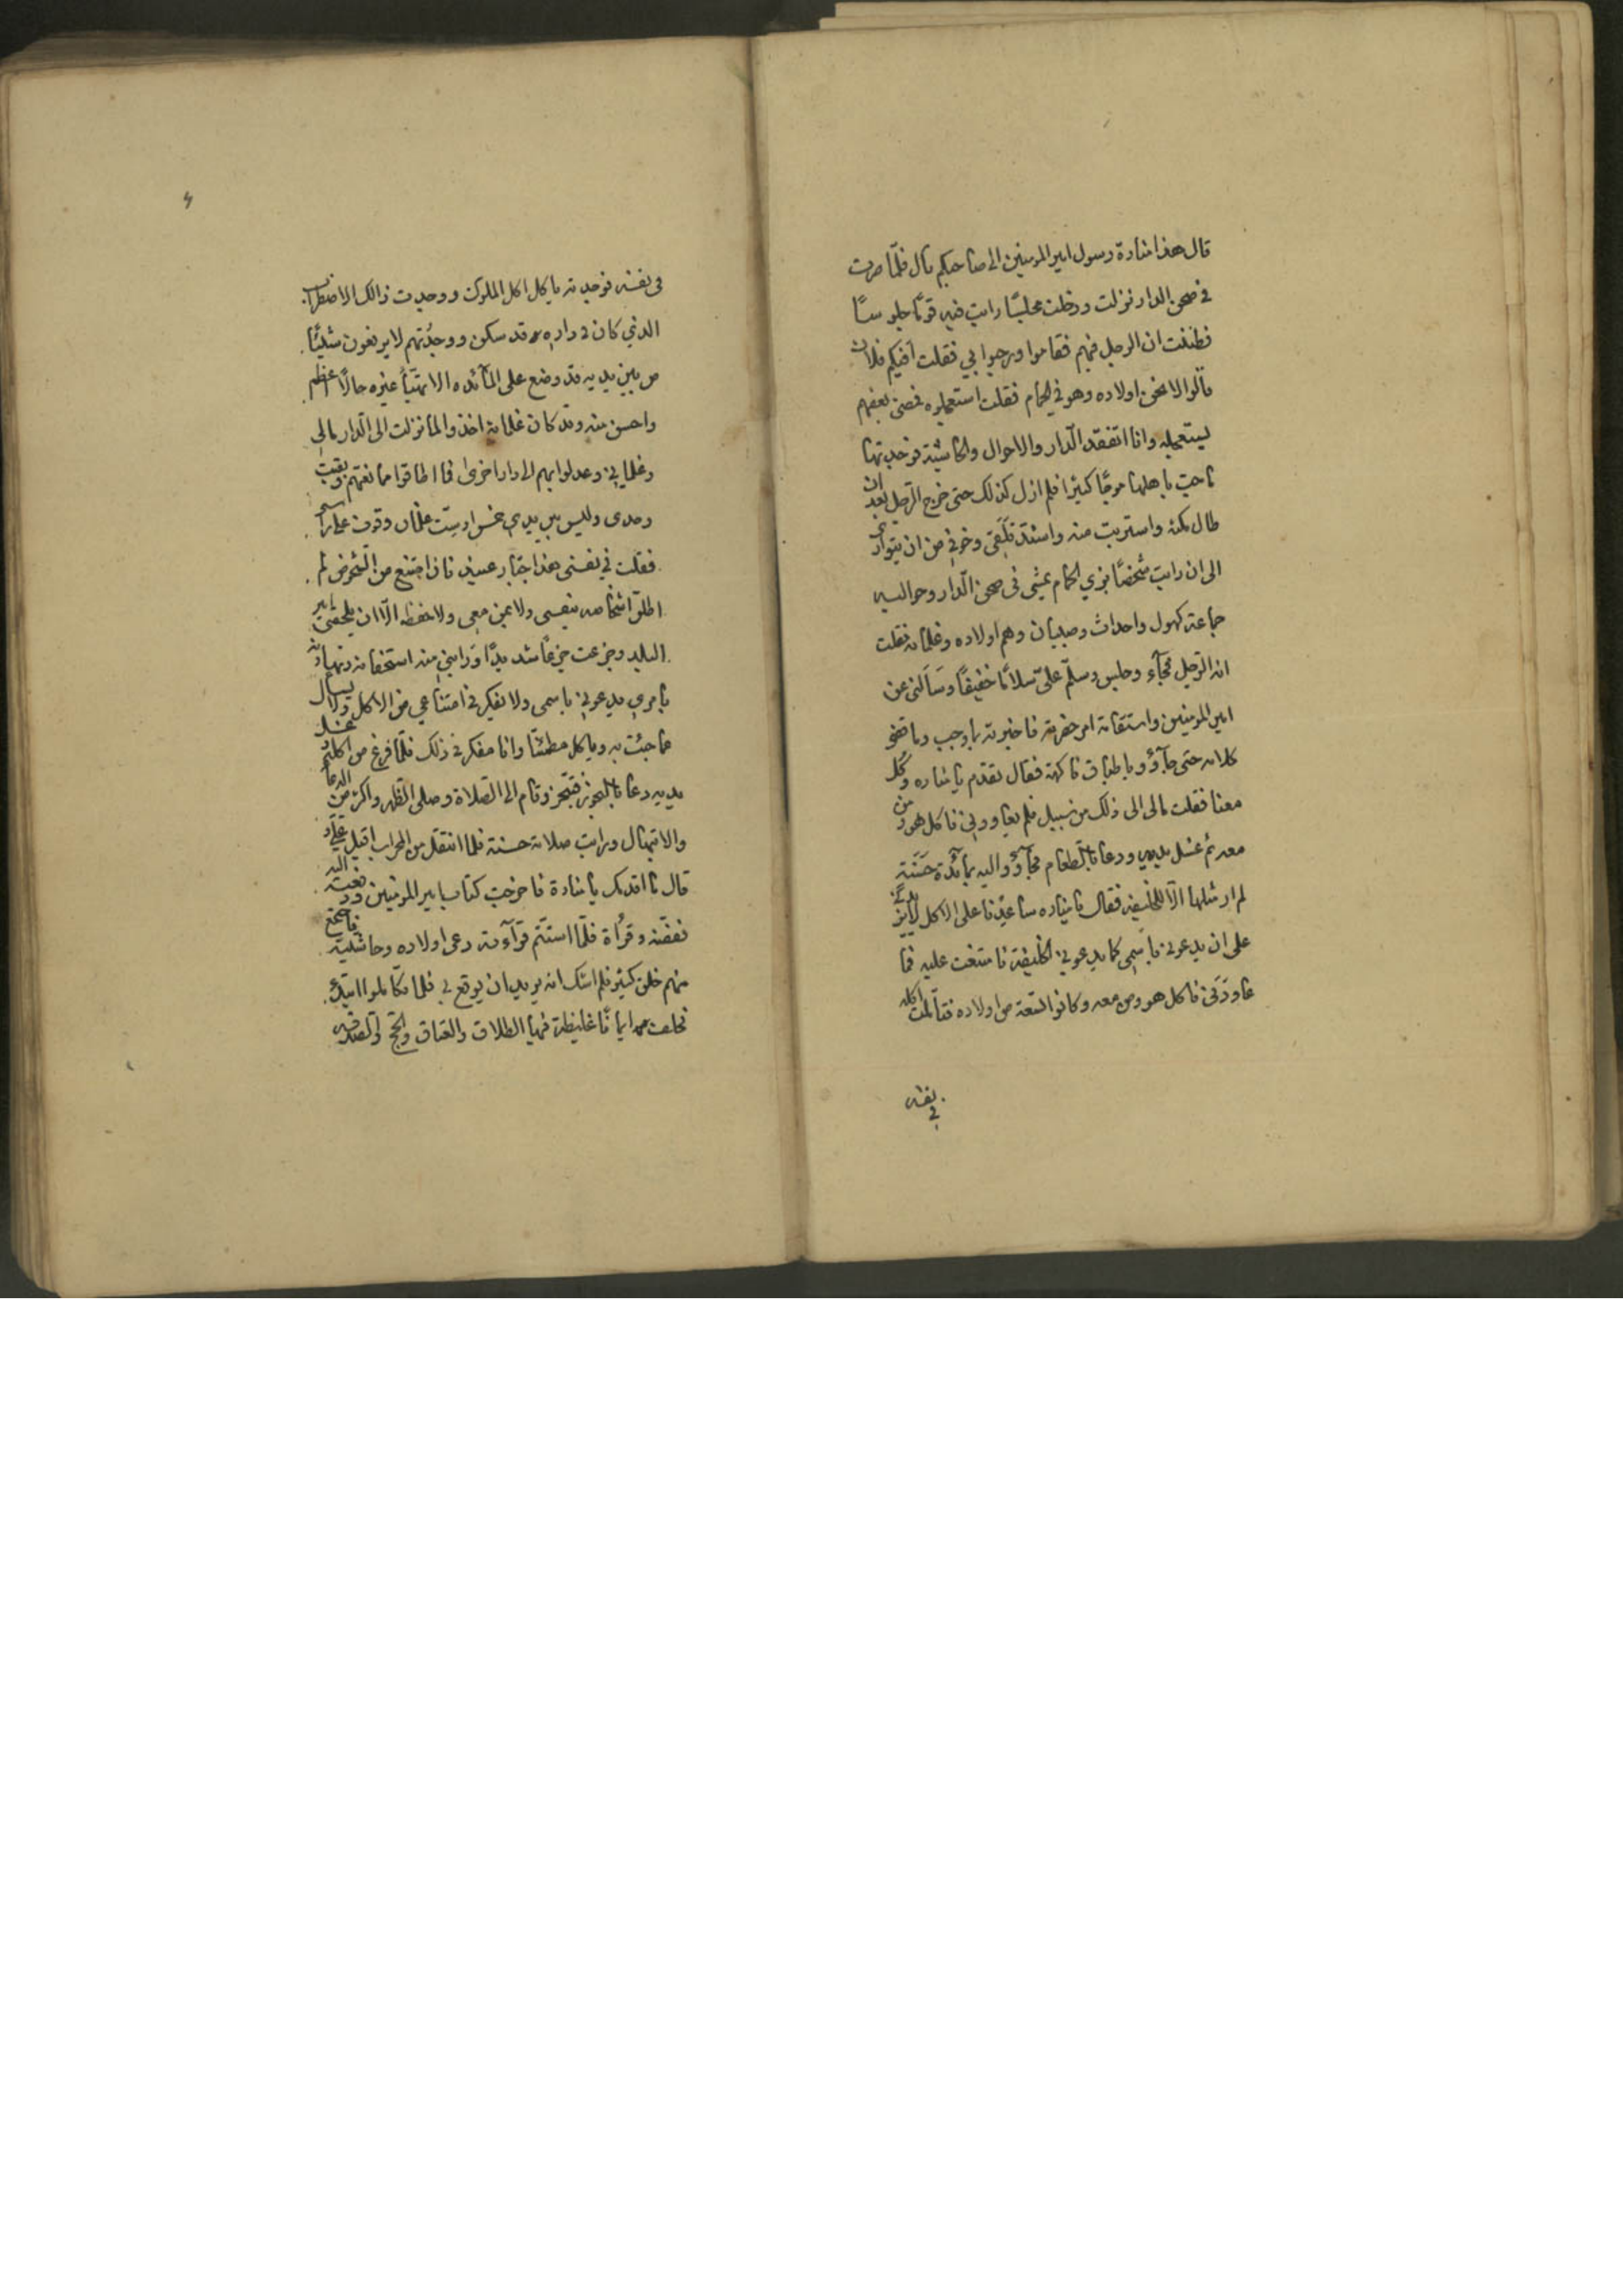 قال هذا منارة رسول امير المومنين الى صاحبكم قال فلمّا صرت
في صحن الدار نزلت ودخلت مجلسًا رايت فيه قومًا جلوسًا
فظننت ان الرجل فيهم فقاموا ورحبوا بي فقلت افيكم فلان
قالوا لا نحن اولاده وهو في الحمام فقلت استعجلوه فمضى بعضهم
ليستعجله وانا اتفقد الدار والاحوال والحاشية فوجدتها
ماجت باهلها موجًا كثيرا فلم ازل كذلك حتى خرج الرجل بعد ان
طال مكثه واستربت منه واشتد قلقي وخوفي من ان يتوارى
الى ان رايت شخصًا بزي الحمام يمشي في صحن الدار وحواليه
جماعة كهول واحداث وصبيان وهم اولاده وغلمانه فقلت
انه الرجل فجآء وجلس وسلّم علىّ سلامًا خفيفًا وسَألني عن
امير المومنين واستقامة امر حضرته فاخبرته بما وجب وما قضى
كلامه حتى جآؤو باطباق فاكهة فقال تقدم يا مناره وكُل
معنا فقلت مالى الى ذلك من سبيل فلم يعاودني فاكل هو ومن
معه ثم غسل يديه ودعا بالطعام فجآؤو اليه بمآئدة حَسَنَة
لم ار مثلها الّا للخليفه فقال يا مناره ساعدنا على الاكل لا يزيدني
على ان يدعوني باسمي كما يدعوني الخليفة فامتنعت عليه فما
عاودَني فاكل هو ومن معه وكانوا تسعة من اولاده فتأملت اكله
في نفسه
في نفسه فوجدته ياكل اكل الملوك ووجدت ذالك الاضطراب
الذي كان في داره قد سكن ووجدُتهم لا يرفعون شيئًا
من بين يديه قد وضع على المآئده الا تهيّأ غيره حالًا اعظم
واحسن منه وقد كان غلمانه اخذوا لما نزلت الى الدار مالى
وغلماني وعدلوا بهم الى دار اخرى فما اطاقوا ممانعتهم وبقيت
وحدى وليس بين يدي خمس او ستّ غلمان وقوف على راسى
فقلت في نفسي هذا جبّار عنيد فان امتنع من الشخوص لم
اطق اشخاصه بنفسى ولا بمن معى ولا حفظه الّا ان يلحقني امير
البلد وجزعت جزعًا شديدًا ورابني منه استخفافه وتهاونه
بامري يدعوني باسمى ولا يفكر في امتناعي من الاكل ولا يسال
عما جئت به وياكل مطمئنًّا وانا مفكر في ذلك فلمّا فرغ من اكله وغسل
يديه دعا بالبخور فتبخر وقام الى الصلاة وصلى الظهر واكثر من الدعآ
والابتهال ورايت صلاته حسنة فلما انتقل من المحراب اقبل عليّ و
قال ما اقدمك يا منارة فاخرجت كتاب امير المومنين ودفعته اليه
ففضّه وقرأه فلمّا استتم قرآءته دعى اولاده وحاشيته فاجتمع
منهم خلق كثير فلم اشك انه يريد ان يوقع بي فلما تكاملوا ابتدء
فحلف ايمانًا غليظة فيها الطلاق والعتاق والحج والصدقه